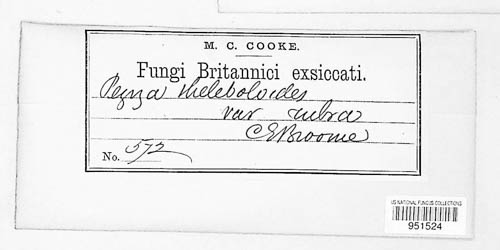 M. C. COOKE.
Fungi Britannici exsiccati.
Peziza theleboloides
var rubra
C E Broome
No. 572
US NATIONAL FUNGUS COLLECTIONS
951524